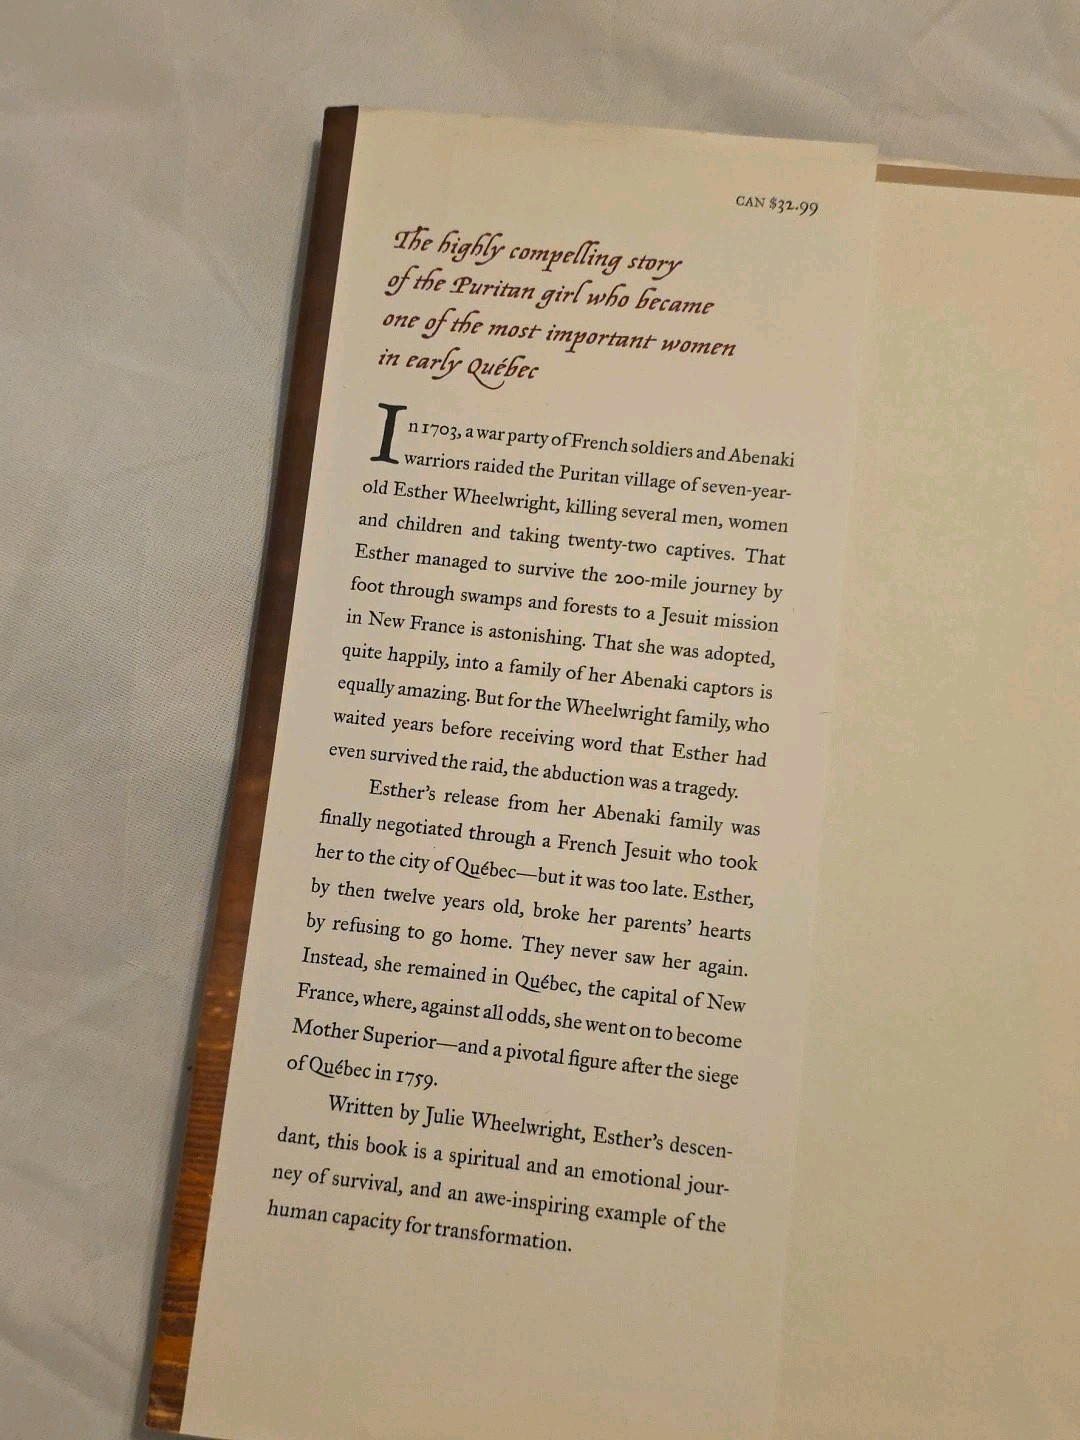 CAN $32.99
The highly compelling story
of the Puritan girl who became
one of the most important women
in early Québec
In 1703, a war party of French soldiers and Abenaki
warriors raided the Puritan village of seven-year-
old Esther Wheelwright, killing several men, women
and children and taking twenty-two captives. That
Esther managed to survive the 200-mile journey by
foot through swamps and forests to a Jesuit mission
in New France is astonishing. That she was adopted,
quite happily, into a family of her Abenaki captors is
equally amazing. But for the Wheelwright family, who
waited years before receiving word that Esther had
even survived the raid, the abduction was a tragedy.
Esther's release from her Abenaki family was
finally negotiated through a French Jesuit who took
her to the city of Québec—but it was too late. Esther,
by then twelve years old, broke her parents' hearts
by refusing to go home. They never saw her again.
Instead, she remained in Québec, the capital of New
France, where, against all odds, she went on to become
Mother Superior—and a pivotal figure after the siege
of Québec in 1759.
Written by Julie Wheelwright, Esther's descen-
dant, this book is a spiritual and an emotional jour-
ney of survival, and an awe-inspiring example of the
human capacity for transformation.